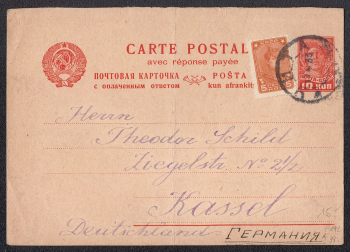 CARTE POSTALE
avec réponse payée
ПОЧТОВАЯ КАРТОЧКА
POŠTA
с оплаченным ответом
kun afrankita
10 КОП
Herrn
Theodor Schild
Ziegelstr. No 2 1/2
Kassel
Deutschland
ГЕРМАНИЯ